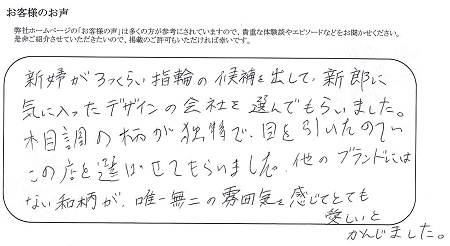 お客様のお声
弊社ホームページの「お客様の声」は多くの方が参考にされていますので、貴重な体験談やエピソードなどをお聞かせください。
是非ご紹介させていただきたいので、掲載のご許可もいただければ幸いです。
新婦が3つくらい指輪の候補を出して、新郎に
気に入ったデザインの会社を選んでもらいました。
木目調の柄が独特で、目を引いたので
この店を選ばせてもらいました。他のブランドには
ない和柄が、唯一無二の雰囲気を感じてとても
愛しいと
かんじました。